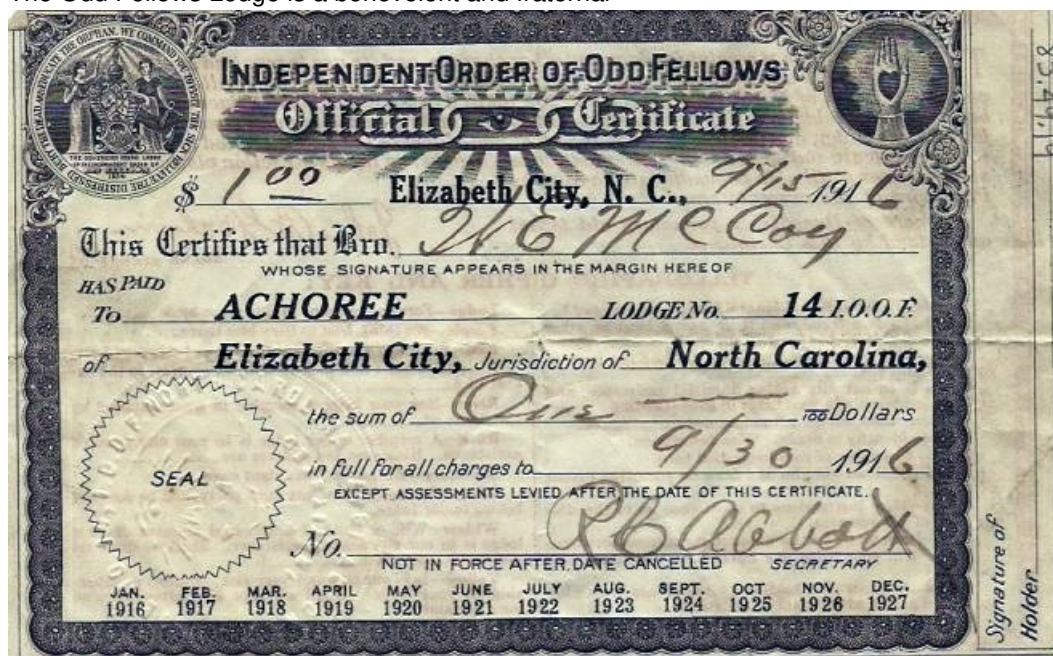 The Odd Fellows Lodge is a benevolent and fraternal
INDEPENDENT ORDER OF ODD FELLOWS
Official Certificate
$ 1 00 Elizabeth City, N. C., 9/15 1916
This Certifies that Bro. W E McCoy
WHOSE SIGNATURE APPEARS IN THE MARGIN HEREOF
HAS PAID
To ACHOREE LODGE No. 14 I.O.O.F.
of Elizabeth City, Jurisdiction of North Carolina,
the sum of One 100 Dollars
in full for all charges to 9/30 1916
EXCEPT ASSESSMENTS LEVIED AFTER THE DATE OF THIS CERTIFICATE.
SEAL
No. R C Abbott
NOT IN FORCE AFTER DATE CANCELLED SECRETARY
JAN. FEB. MAR. APRIL MAY JUNE JULY AUG. SEPT. OCT NOV. DEC.
1916 1917 1918 1919 1920 1921 1922 1923 1924 1925 1926 1927
Signature of
Holder